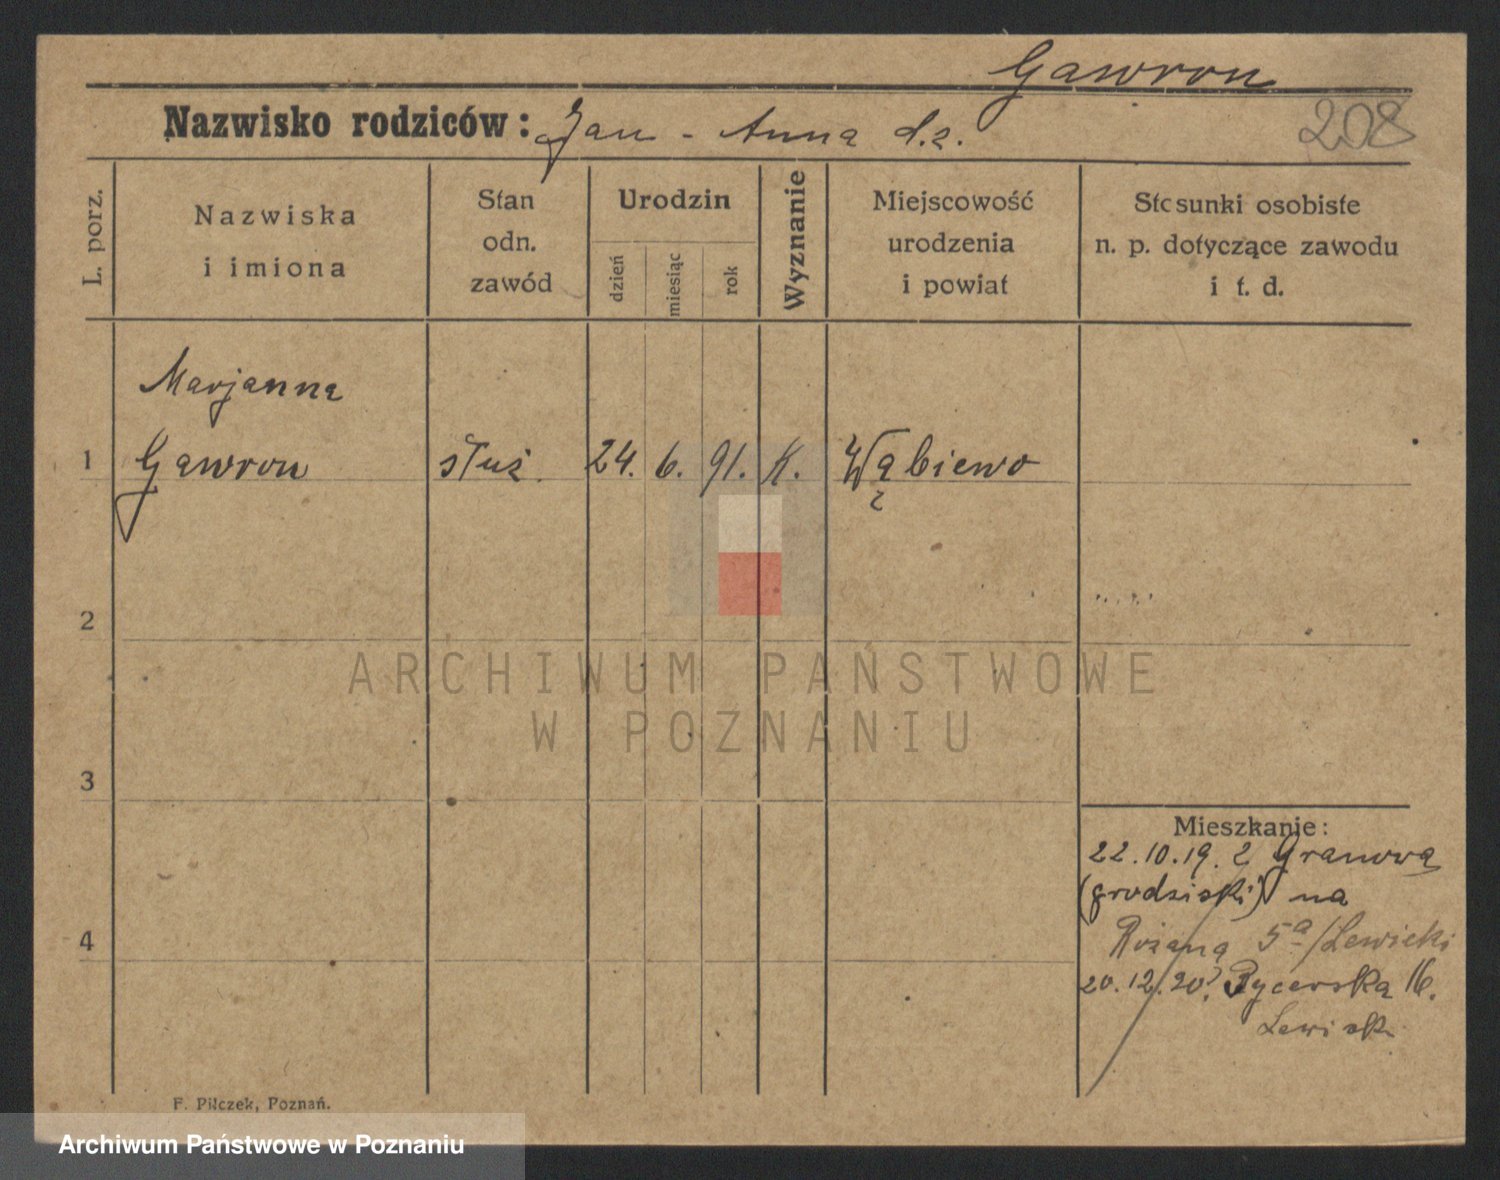 Gawron
Nazwisko rodziców: Jan - Anna d.z.
208
L. porz.
Nazwiska
i imiona
Stan
odn.
zawód
Urodzin
dzień
miesiąc
rok
Wyznanie
Miejscowość
urodzenia
i powiat
Stosunki osobiste
n. p. dotyczące zawodu
i t. d.
Marjanna
1 Gawron służ. 24. 6. 91. K. Wąbiewo
2
ARCHIWUM PAŃSTWOWE
W POZNANIU
3
Mieszkanie:
22.10.19. z Granowa
(grodziski) na
4
Różana 5a/Lewicki
20.12.20. Rycerska 16.
F. Pilczek, Poznań.
Archiwum Państwowe w Poznaniu